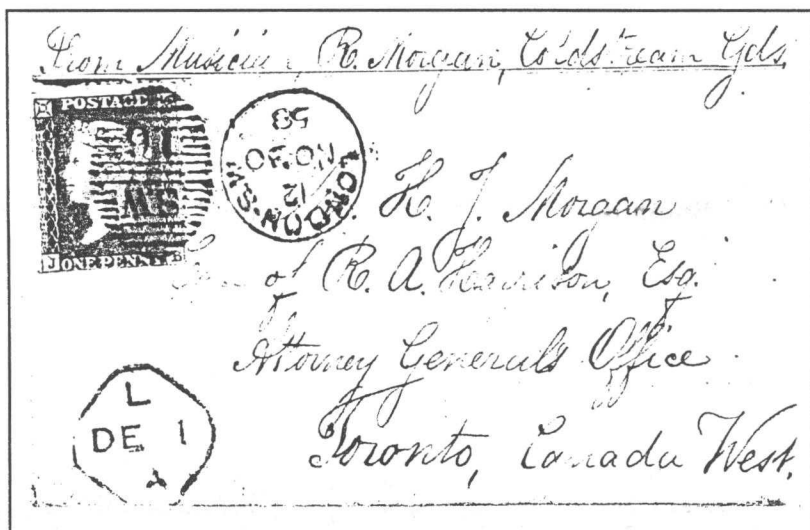 From Musician R. Morgan, Coldstream Gds.
POSTAGE
ONE PENNY
J
B
16
SW
LONDON-SW
12
NO 30
58
H. J. Morgan
of R. A. Harrison, Esq.
Attorney General's Office
Toronto, Canada West.
L
DE 1
A